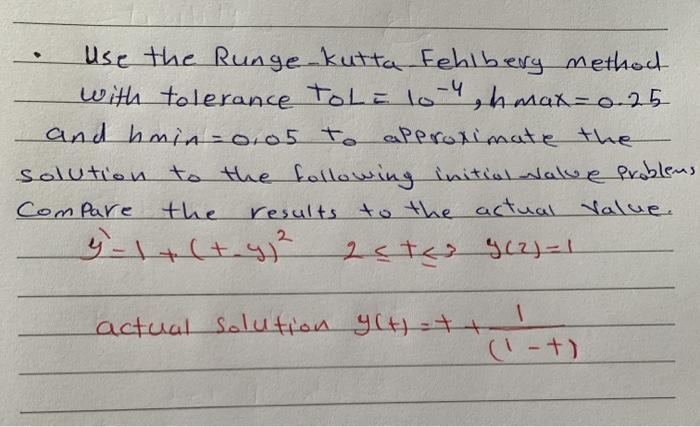 • Use the Runge-kutta Fehlberg method
with tolerance TOL = 10^-4, h max = 0.25
and hmin = 0.05 to approximate the
solution to the following initial value Problems
Compare the results to the actual value.
y' = 1 + (t-y)^2 2 ≤ t ≤ 3 y(2) = 1
actual solution y(t) = t + 1/(1-t)